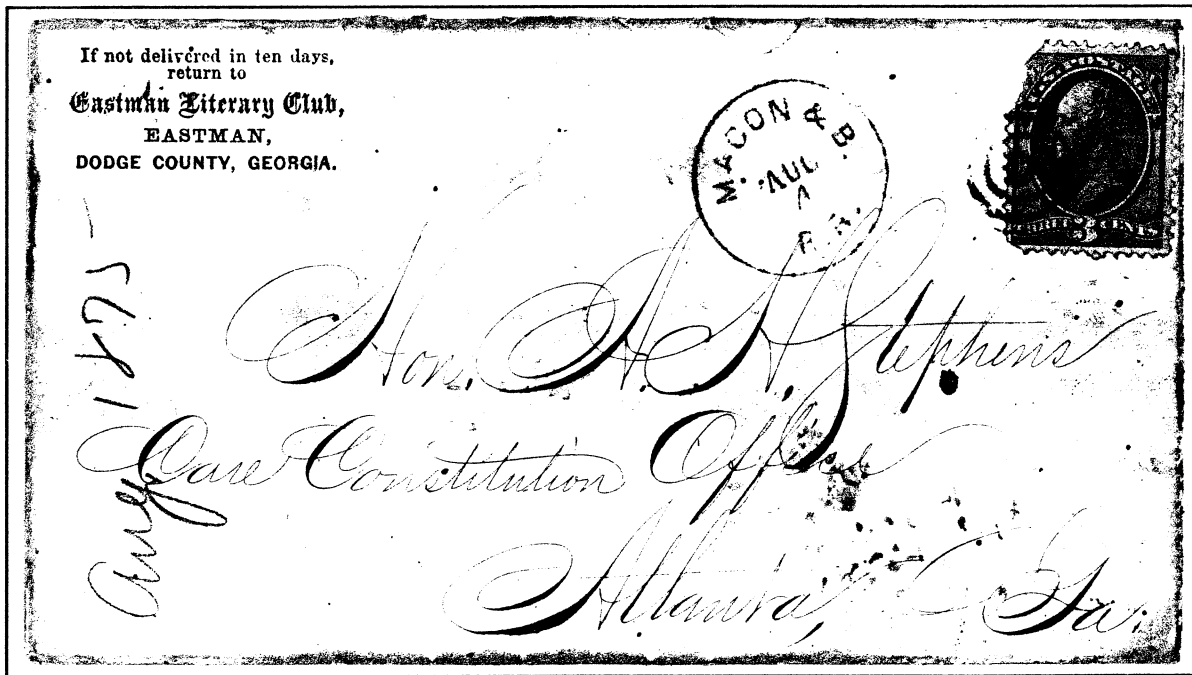 If not delivered in ten days,
return to
Eastman Literary Club,
EASTMAN,
DODGE COUNTY, GEORGIA.
MACON & B.
AUG
R.R.
U.S. POSTAGE
THREE 3 CENTS
Hon. A. H. Stephens
Care Constitution Office
Atlanta, Ga.
Aug 1875